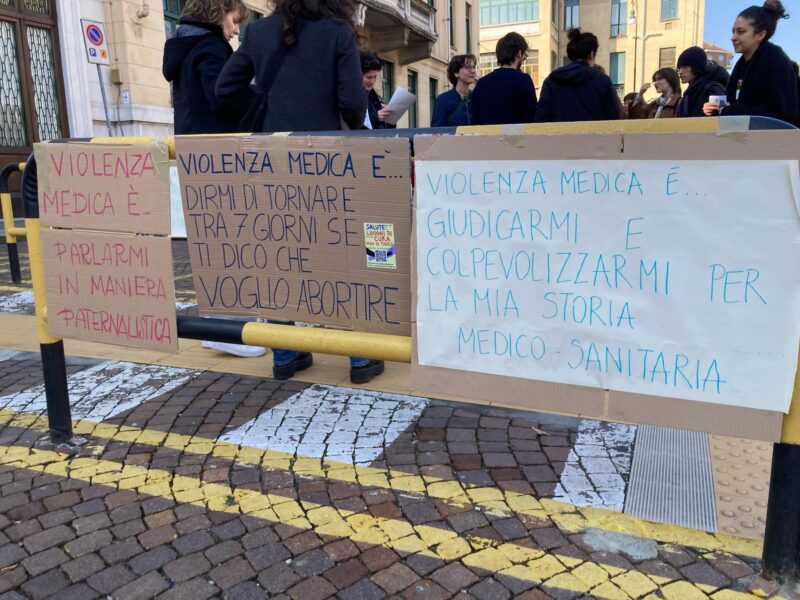 VIOLENZA
MEDICA È...
PARLARMI
IN MANIERA
PATERNALISTICA
VIOLENZA MEDICA È...
DIRMI DI TORNARE
TRA 7 GIORNI SE
TI DICO CHE
VOGLIO ABORTIRE
SALUTE
LUOGHI DI
CURA
VIOLENZA MEDICA È...
GIUDICARMI E
COLPEVOLIZZARMI PER
LA MIA STORIA
MEDICO-SANITARIA